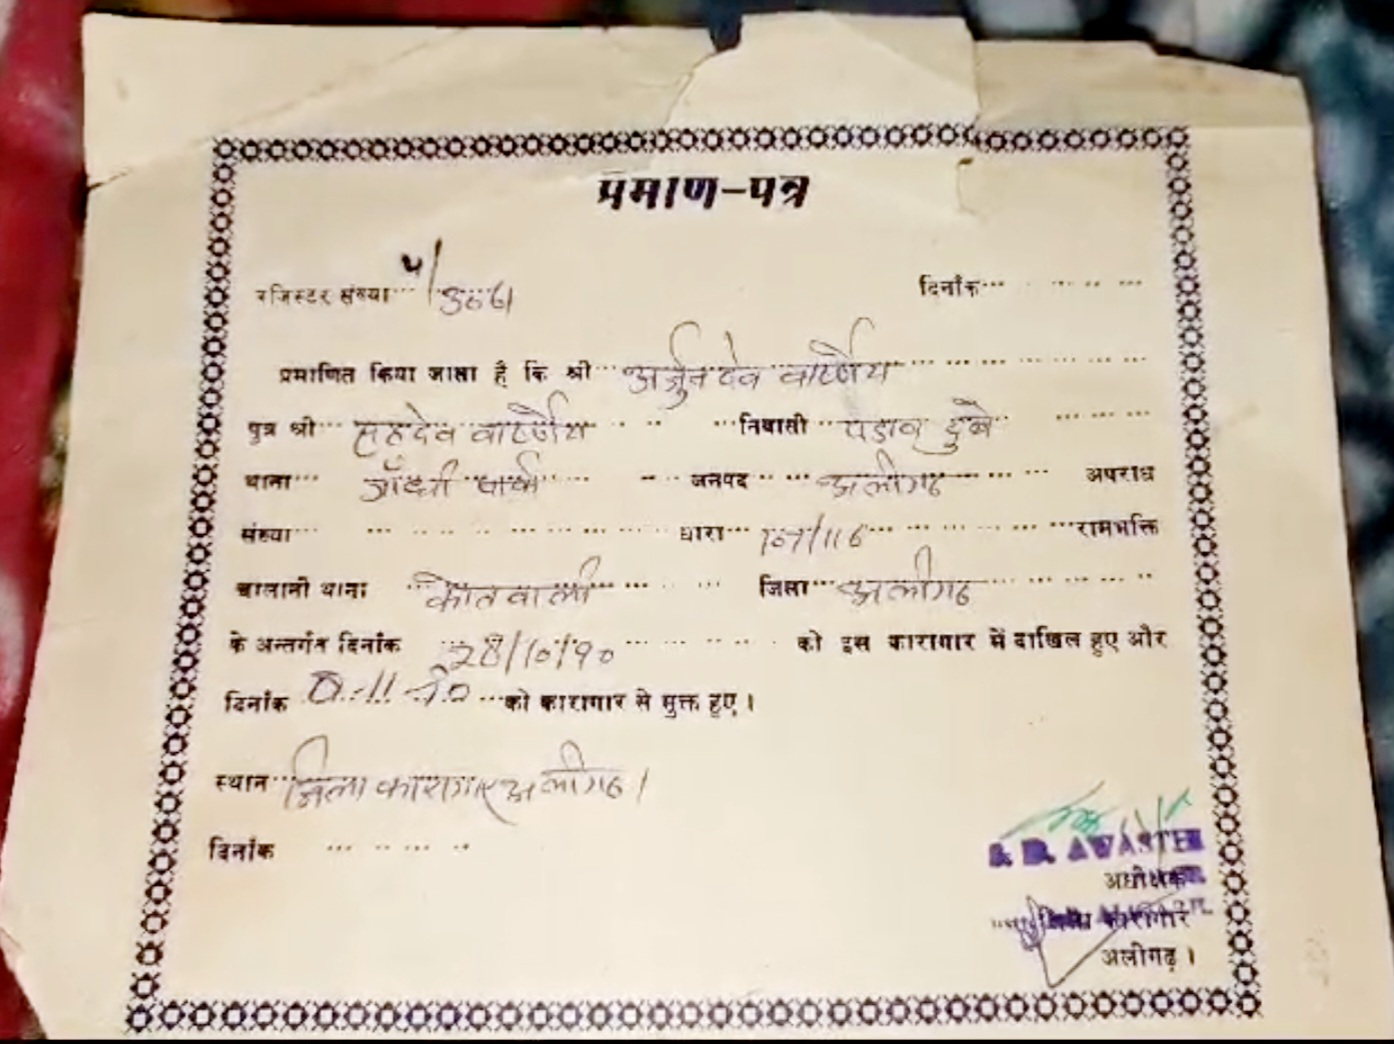 प्रमाण-पत्र
रजिस्टर संख्या ५/3661 दिनाँक
प्रमाणित किया जाता है कि श्री अर्जुन देव वार्ष्णेय
पुत्र श्री सहदेव वार्ष्णेय निवासी पडाव दुबे
थाना गाँधी पार्क जनपद अलीगढ अपराध
संख्या धारा 107/116 रामभक्ति
चालानी थाना कोतवाली जिला अलीगढ
के अन्तर्गत दिनाँक 28/10/90 को इस कारागार में दाखिल हुए और
दिनाँक को कारागार से मुक्त हुए ।
स्थान जिला कारागार अलीगढ ।
दिनाँक
S. D. AWASTHI
अधीक्षक
जिला कारागार
अलीगढ़ ।